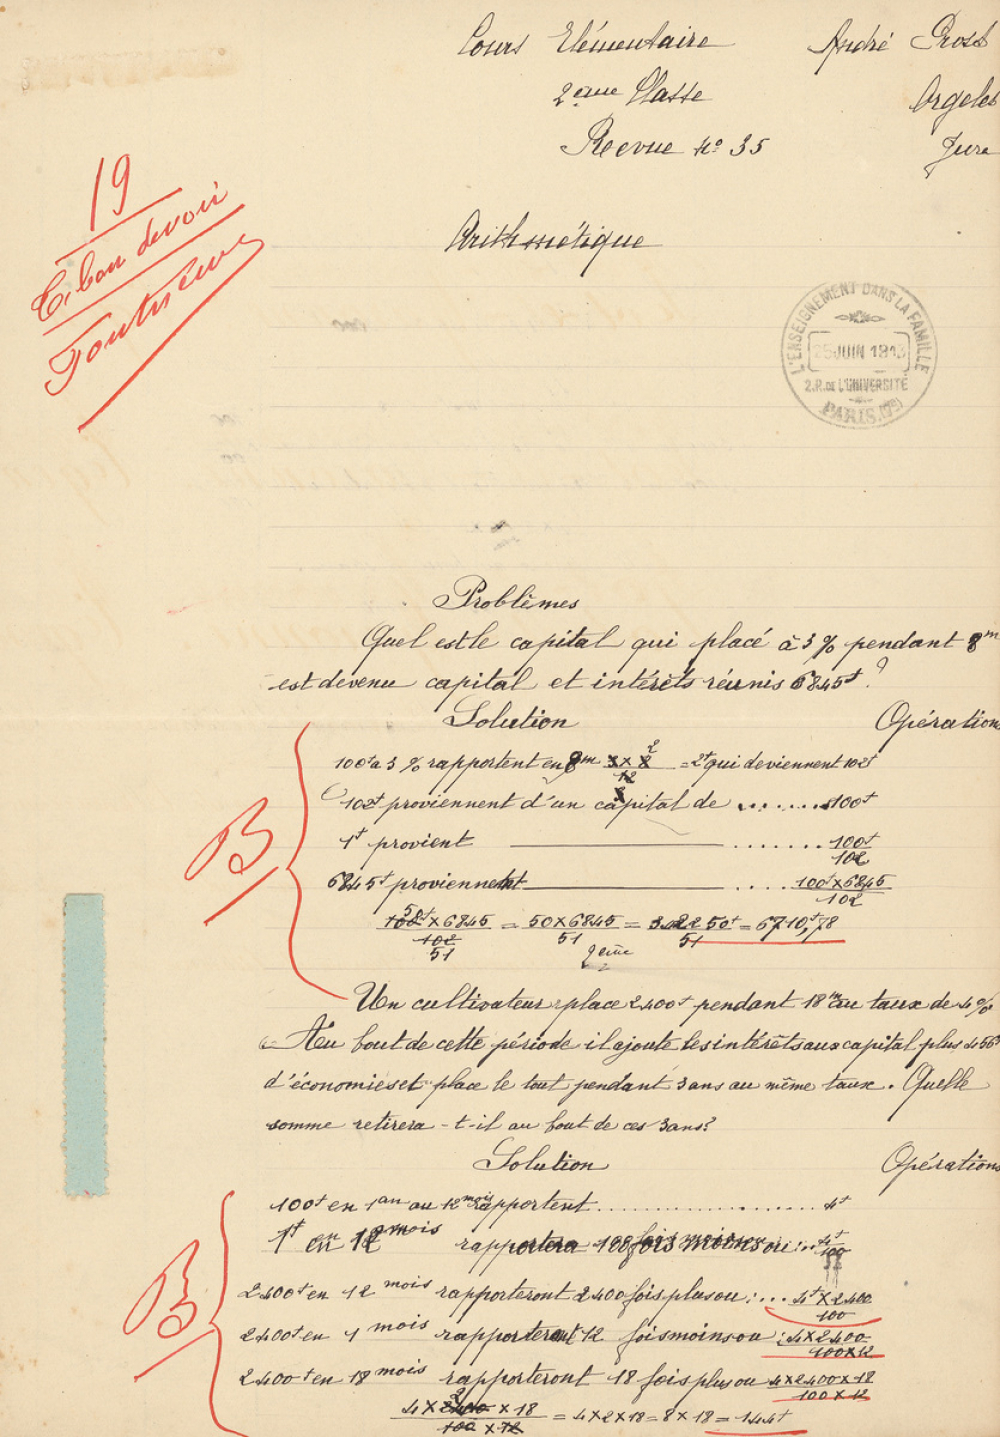 Cours Elémentaire
André Prost
2ème Classe
Orgelet
Revue No 35
Jura
19
T. bon devoir
Arithmétique
L'ENSEIGNEMENT DANS LA FAMILLE
25 JUIN 1913
2.R. DE L'UNIVERSITÉ
PARIS. (7e)
Problèmes
Quel est le capital qui placé à 3% pendant 8m
est devenu capital et intérêts réunis 6845f ?
Solution
Opération
100f à 3% rapportent en 8m 3 x 8 / 12 = 2f qui deviennent 102f
102f proviennent d'un capital de ........ 100f
1f provient ........ 100f / 102
6845f proviennent .... 100f x 6845 / 102
B
100f x 6845 / 102 = 50 x 6845 / 51 = 342250f / 51 = 6710,f78
2ème
Un cultivateur place 2400f pendant 18m au taux de 4%
Au bout de cette période il ajoute les intérêts au capital plus 456f
d'économies et place le tout pendant 3 ans au même taux. Quelle
somme retirera-t-il au bout de ces 3 ans?
Solution
Opérations
100f en 1an ou 12mois rapportent .................... 4f
1f en 12mois rapportera 100 fois moins ou : .. 4f / 100
2400f en 12mois rapporteront 2400 fois plus ou : ... 4f x 2400 / 100
B
2400f en 1mois rapporteront 12 fois moins ou : 4 x 2400 / 100 x 12
2400f en 18mois rapporteront 18 fois plus ou 4 x 2400 x 18 / 100 x 12
4 x 2400 x 18 / 100 x 12 = 4 x 2 x 18 = 8 x 18 = 144f